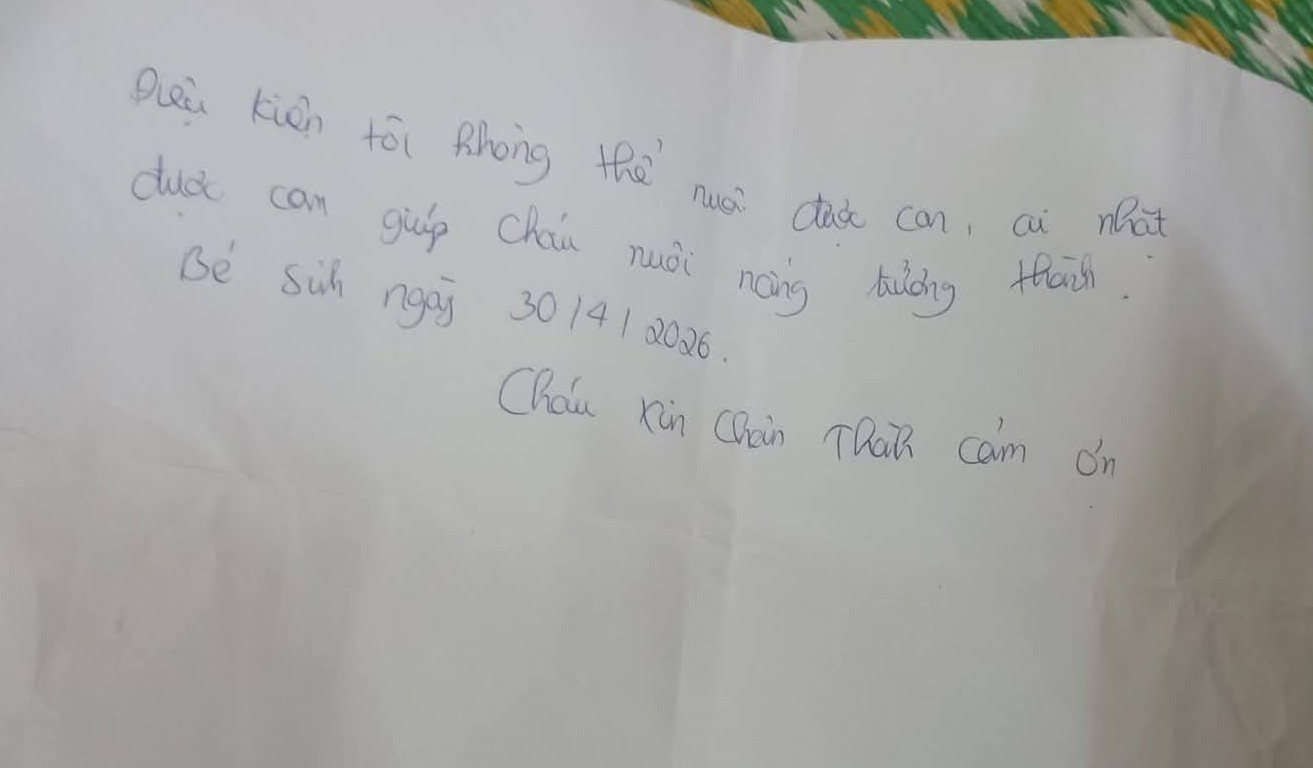 Điều kiện tôi không thể nuôi được con, ai nhặt
được con giúp cháu nuôi nấng trưởng thành.
Bé sinh ngày 30/4/2026.
Cháu xin chân thành cảm ơn